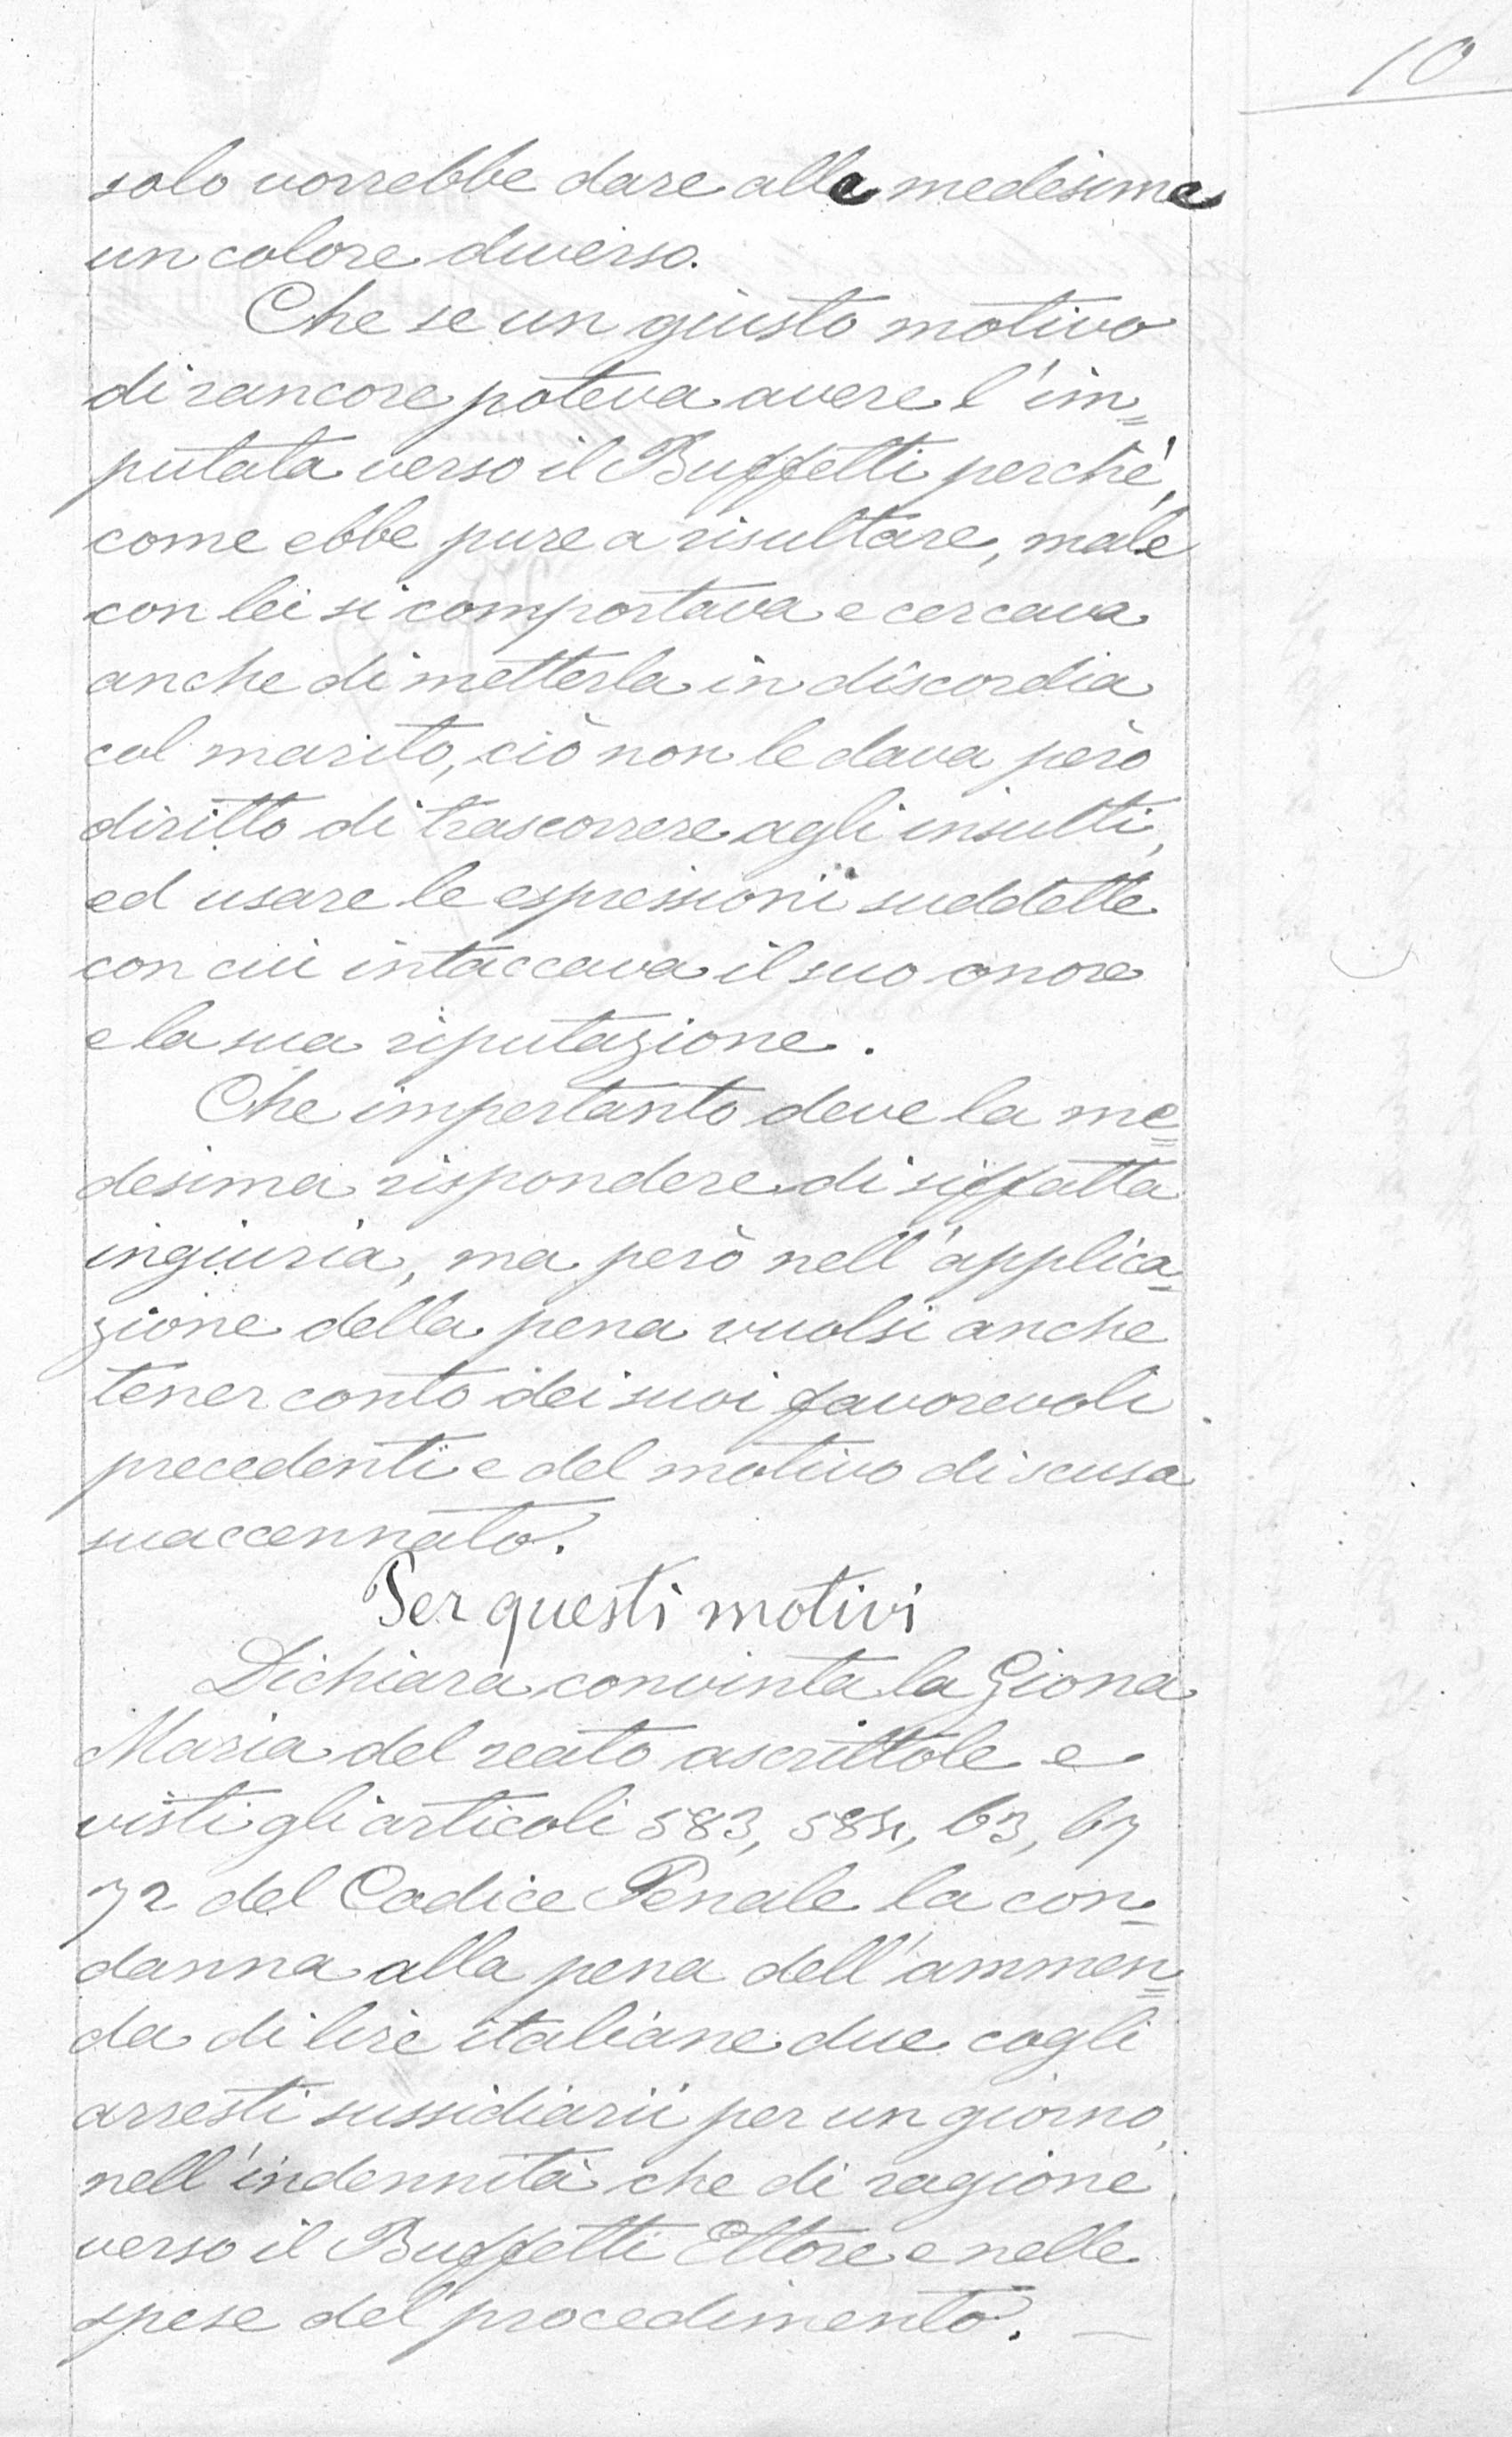 10
solo vorrebbe dare alle medesime
un colore diverso.
Che se un giusto motivo
di rancore poteva avere l'im=
putata verso il Buffetti perchè,
come ebbe pure a risultare, male
con lei si comportava e cercava
anche di metterla in discordia
col marito, ciò non le dava però
diritto di trascorrere agli insulti,
ed usare le espressioni suddette
con cui intaccava il suo onore
e la sua riputazione.
Che impertanto deve la me=
desima rispondere di siffatta
ingiuria, ma però nell'applica=
zione della pena vuolsi anche
tener conto dei suoi favorevoli
precedenti e del motivo di scusa
suaccennato.
Per questi motivi
Dichiara convinta la Giona
Maria del reato ascrittole e
visti gli articoli 583, 584, 63, 67
72 del Codice Penale la con=
danna alla pena dell'ammen=
da di lire italiane due cogli
arresti sussidiarii per un giorno,
nell'indennità che di ragione
verso il Buffetti Ettore e nelle
spese del procedimento. —